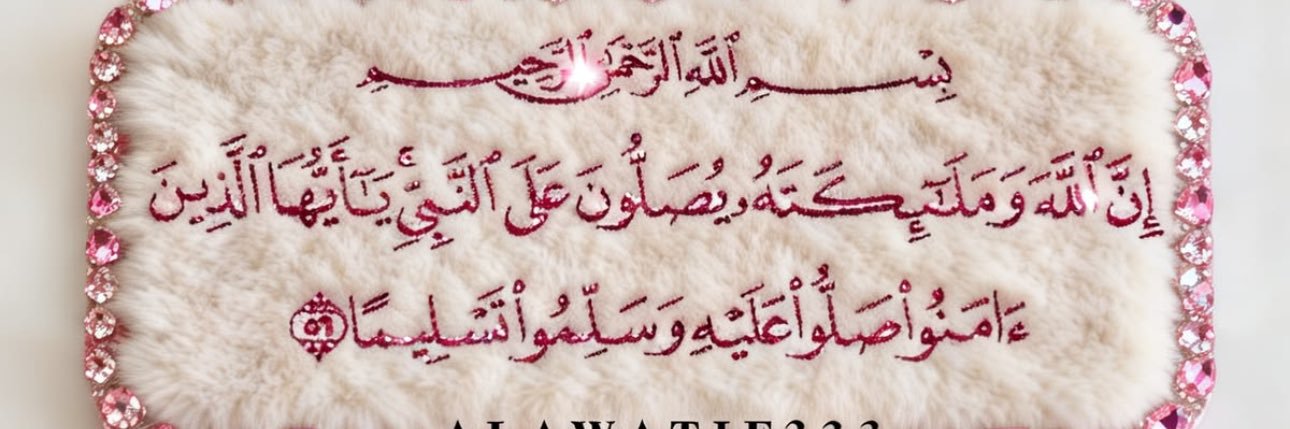 بِسْمِ ٱللَّهِ ٱلرَّحْمَٰنِ ٱلرَّحِيمِ
إِنَّ ٱللَّهَ وَمَلَٰٓئِكَتَهُۥ يُصَلُّونَ عَلَى ٱلنَّبِىِّ يَٰٓأَيُّهَا ٱلَّذِينَ
ءَامَنُوا۟ صَلُّوا۟ عَلَيْهِ وَسَلِّمُوا۟ تَسْلِيمًا ٥٦